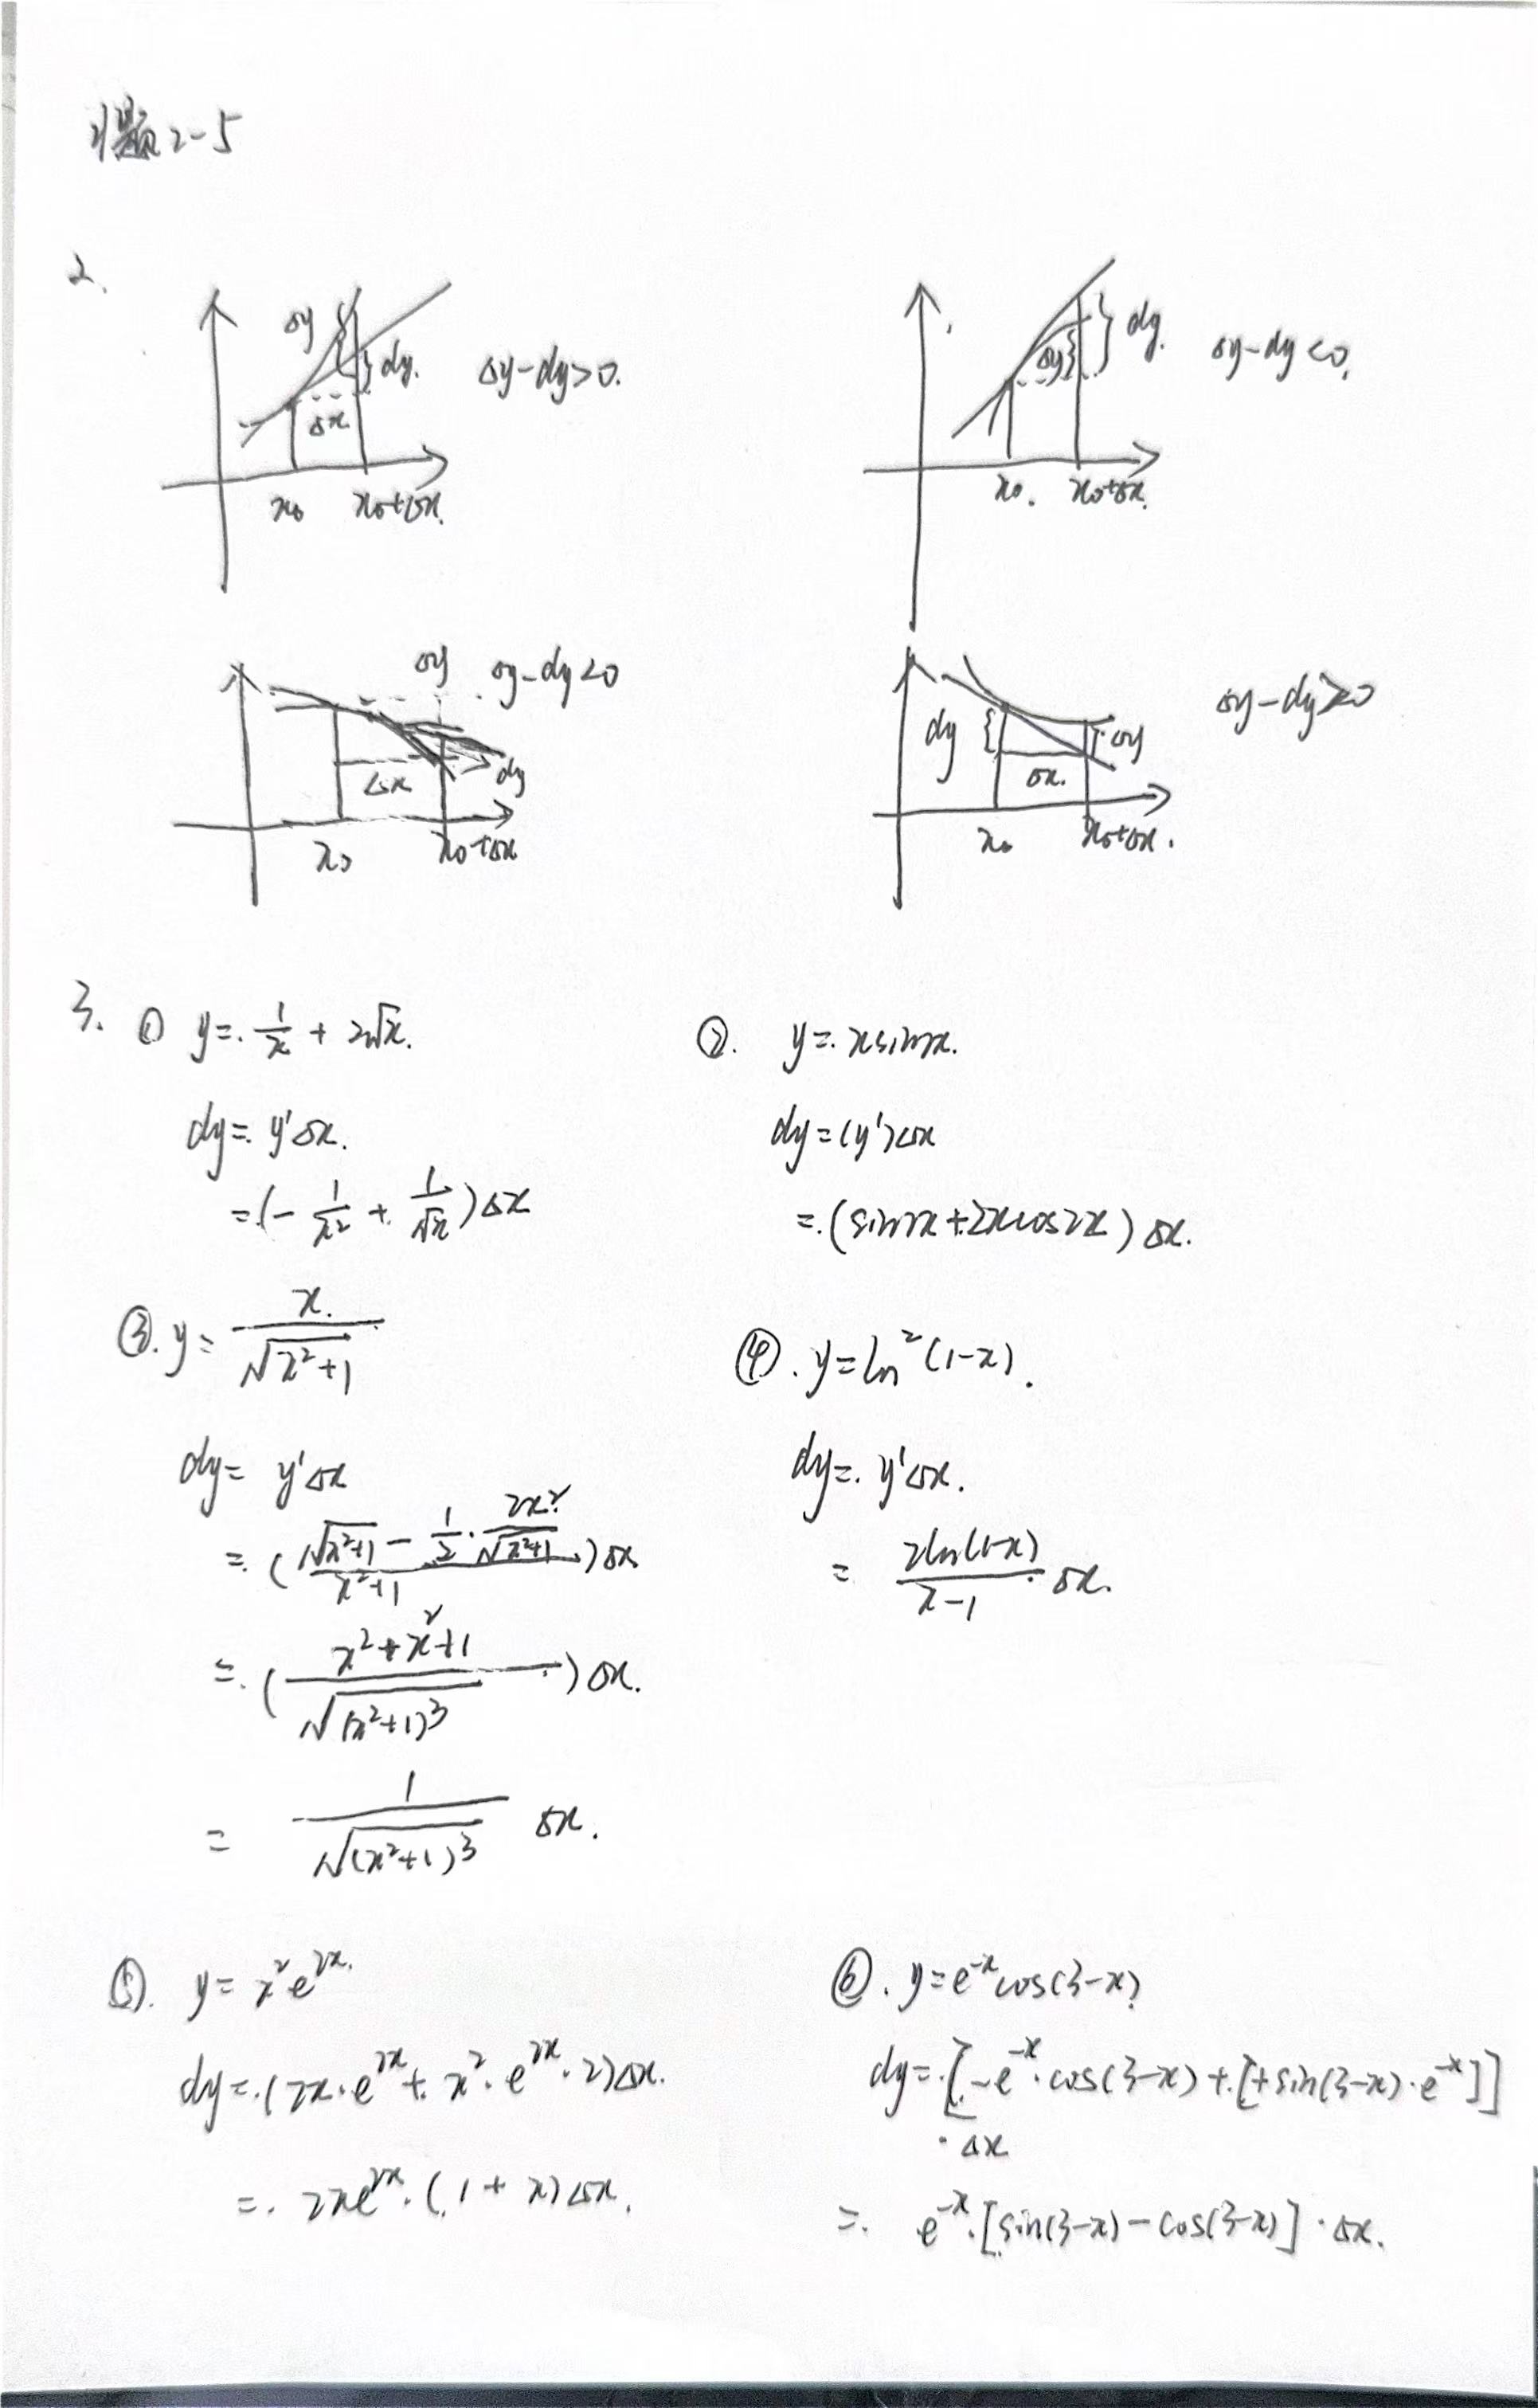 习题2-5
2.
Δy dy. Δy-dy>0.
Δx
x₀ x₀+Δx.
Δy dy. Δy-dy<0.
x₀. x₀+Δx.
Δy Δy-dy<0
Δx dy
x₀ x₀+Δx
dy Δy Δy-dy>0
Δx.
x₀ x₀+Δx.
3. ① y=1/x + 2√x.
dy= y'Δx.
=(-1/x² + 1/√x)Δx
②. y= xsin2x.
dy=(y')Δx
=(sin2x+2xcos2x)Δx.
③. y= x/√(x²+1)
dy= y'Δx
= ((√(x²+1) - 1/2 · 2x²/√(x²+1))/(x²+1))Δx
= ((x²+x²+1)/√((x²+1)³))Δx.
= 1/√((x²+1)³) Δx.
④. y=ln²(1-x).
dy= y'Δx.
= 2ln(1-x)/(x-1) Δx.
⑤. y= x²e^(2x).
dy=(2x·e^(2x)+x²·e^(2x)·2)Δx.
= 2xe^(2x)·(1+x)Δx.
⑥. y=e^(-x)cos(3-x)
dy=[-e^(-x)·cos(3-x)+[+sin(3-x)·e^(-x)]]
·Δx
= e^(-x)·[sin(3-x)-cos(3-x)]·Δx.